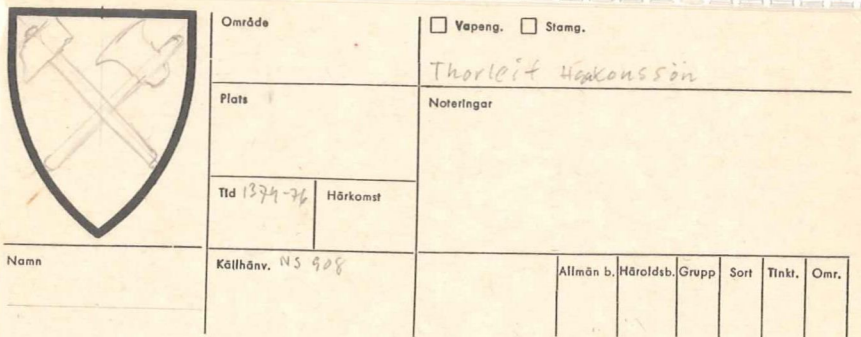 Område
☐ Vapeng. ☐ Stamg.
Thorleif Haakonssön
Plats
Noteringar
Tid 1374-76
Härkomst
Namn
Källhänv. NS 908
Allmän b.
Häroldsb.
Grupp
Sort
Tinkt.
Omr.